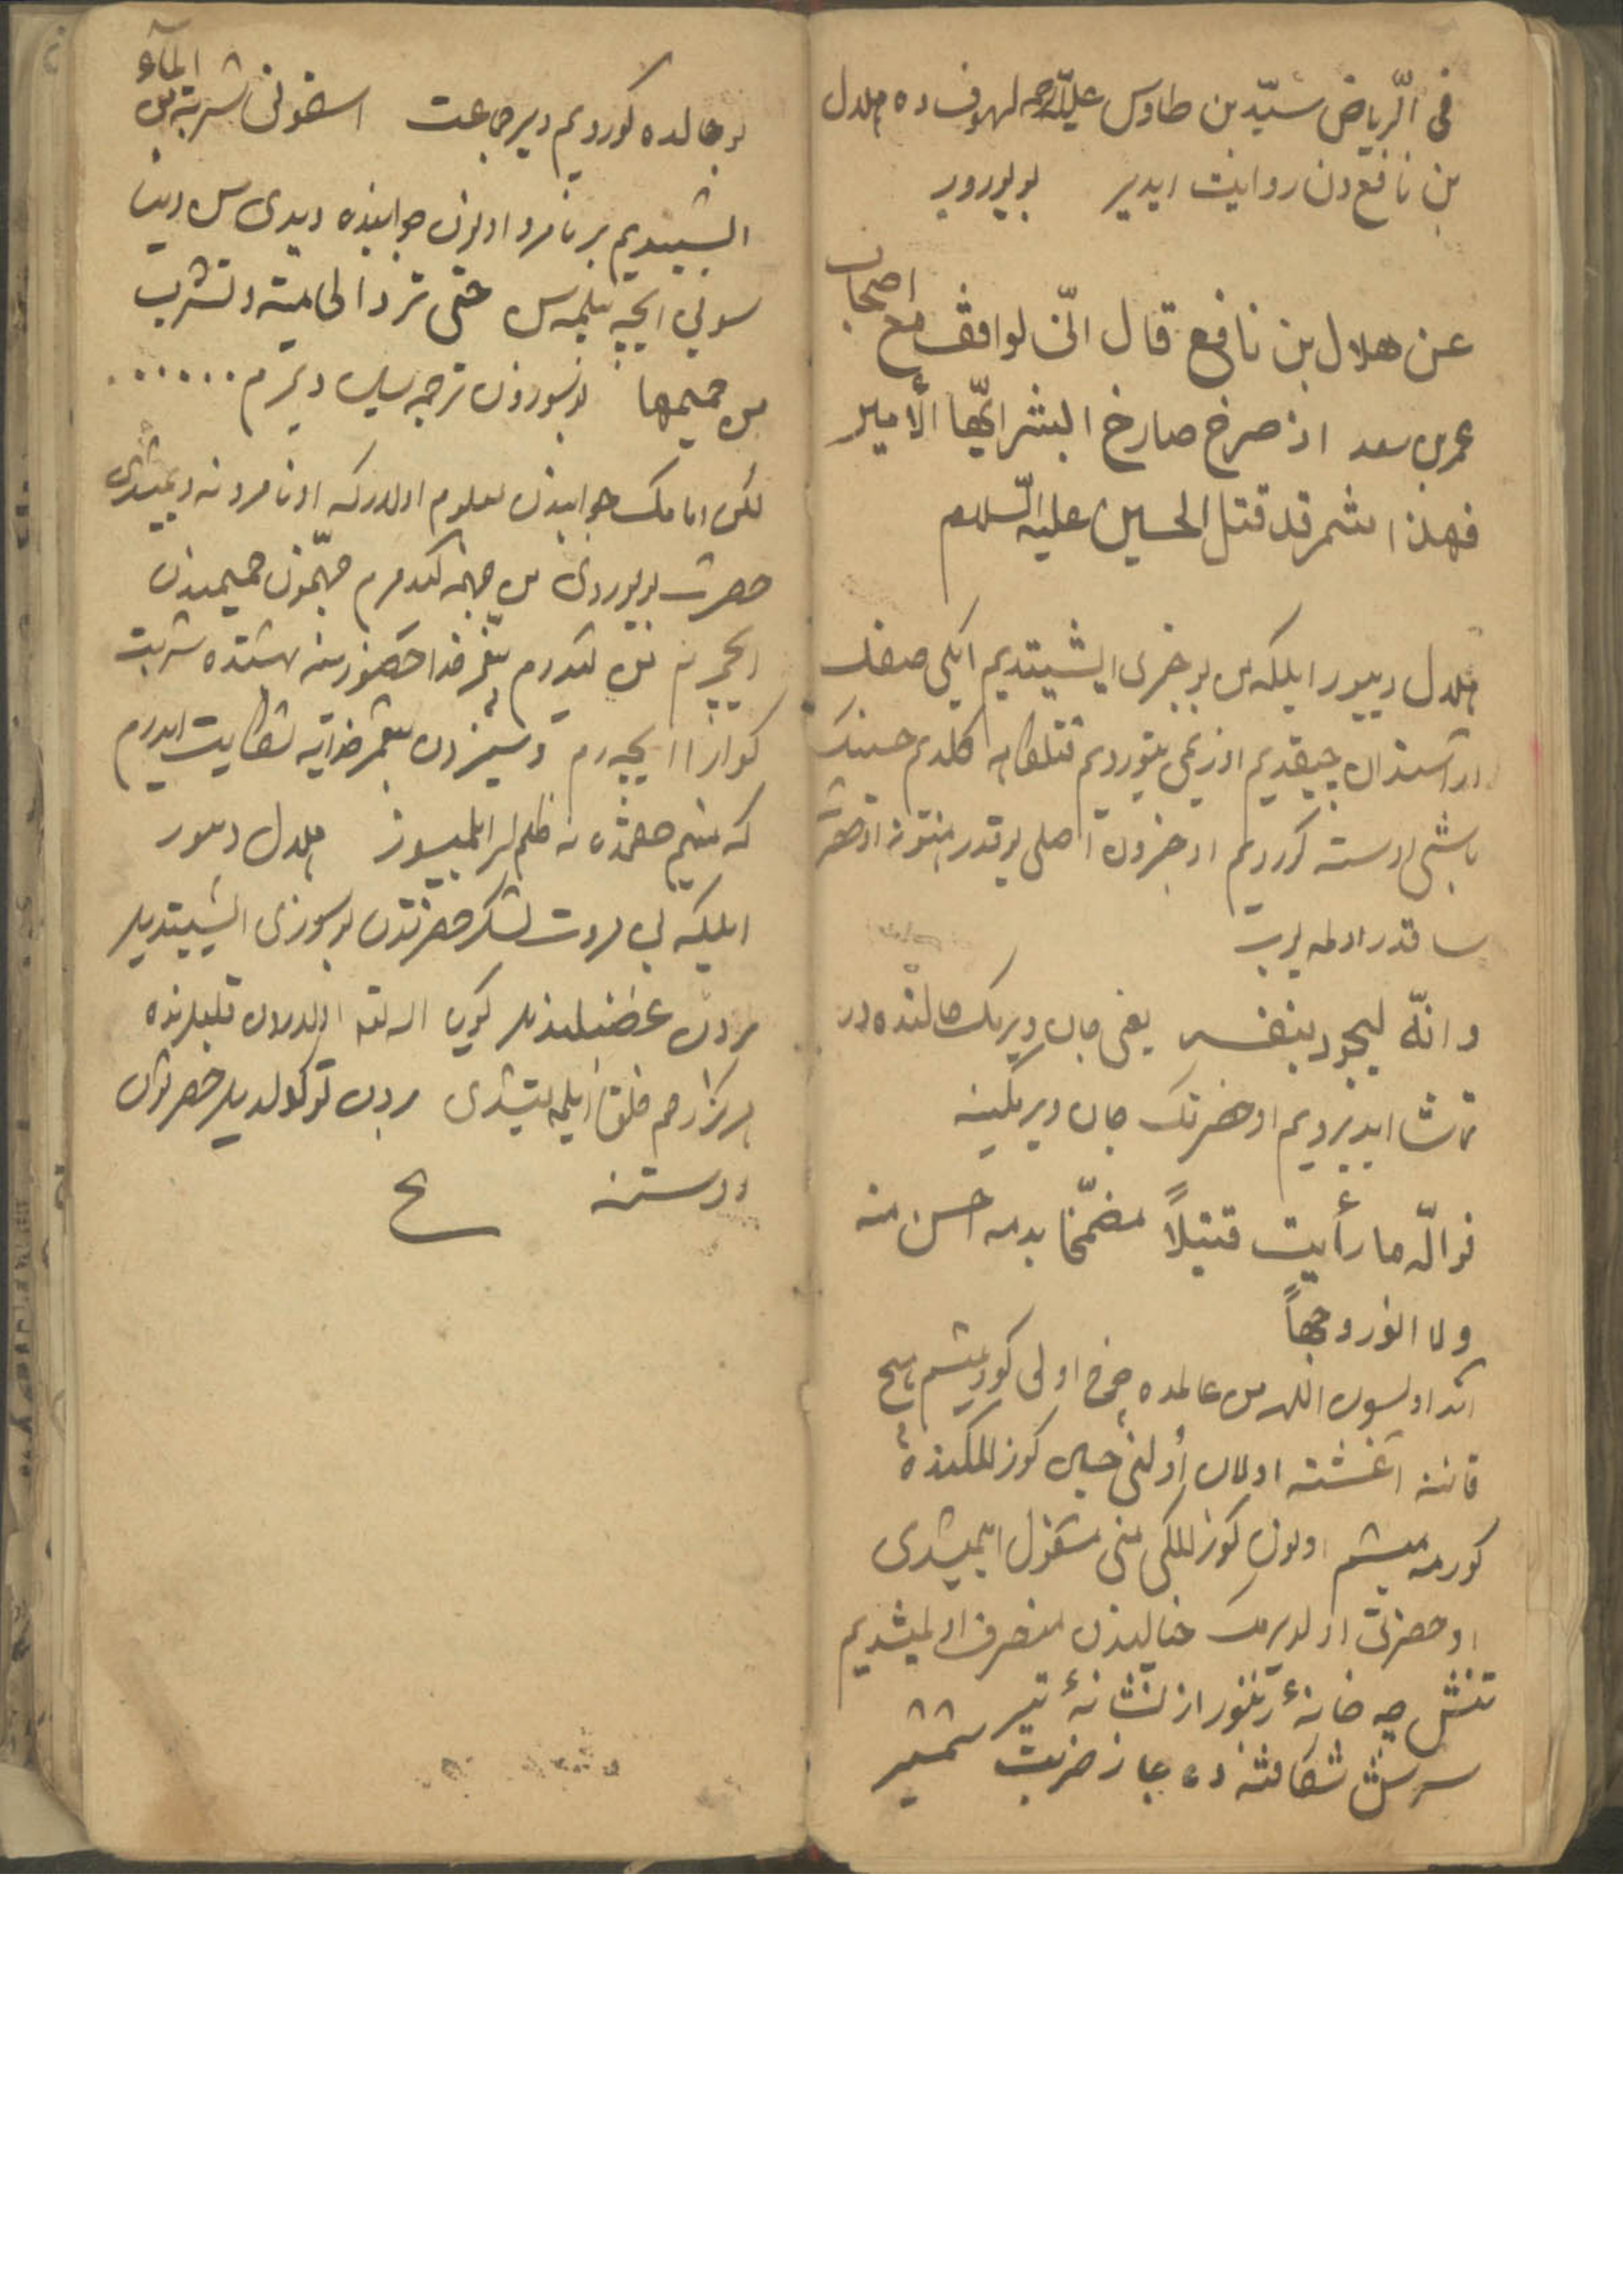 فی الّریاض سیّد بن طاوس علیه الرحمه لهوف ده هلال
بن نافع دن روایت ایدیر بویورور
عن هلال بن نافع قال انّی لواقف مع اصحاب
عمر بن سعد اذ صرخ صارخ ابشر ایّها الأمیر
فهذا شمر قد قتل الحسین علیه السّلام
هلال دیور ایلکه من بو خبری ایشیتدیم ایکی صفک
آراسندان چیقدیم اوزیمی یتوردیم قتلکاهه کلدیم حسینک
باشی اوسته کوردیم او خبرون اصلی یوقدر هنوز او حضرت
ساقدر اولمه یوب
و انّه لیجود بنفسه یعنی جان ویرمک حالنده در
تماشا ایدیردیم او حضرتک جان ویرمکینه
فوالّله ما رأیت قتیلاً مضمّخا بدمه احسن منه
ولا انور وجهاً
آند اولسون اللهه من عالمده چوخ اولی کورمیشم هیچ
قاننه آغشته اولان اولنی حسین کوزللکنده
کورمه میشم اونون کوزللکی منی مشغول ایتمیشدی
او حضرت اولدیرمک خیالیندن منصرف اولمیشدیم
تنش چه خانهٔ زنبور از نشانهٔ تیر
سرش شکافته ده جا ز ضربت شمشیر
بو حالده کوردیم دیر جماعت اسقونی شربة من الماء
ایشیتدیم بر نامرد اونون جوابنده دیدی سن دینا
سوئی ایچه بیلمه سن حتی ترد الحامیة و تشرب
من حمیمها بو سوزون ترجمه سین دیمرم ......
لکن امامک جوابندن معلوم اولدر که او نامرد نه دیمیشدی
حضرت بویوردی من جهنمه کیدمرم جهنّمون حمیمیندن
ایچمرم من کیدرم پیغمبر خدا حضورینه بهشتده شربت
کوارا ایچه رم و سیزدن پیغمبر خدایه شکایت ایدرم
که منیم حقمده نه ظلملر ایلمیسوز هلال دیور
ایلکه بی مروت لشکر حضرتدن بو سوزی ایشیتدیلر
بردن غضبلندیلر کوی الله لته اولارون قلبلرنده
هرکز رحم خلق ایلمه میشدی بردن توکولدیلر حضرتون
اوستنه ح